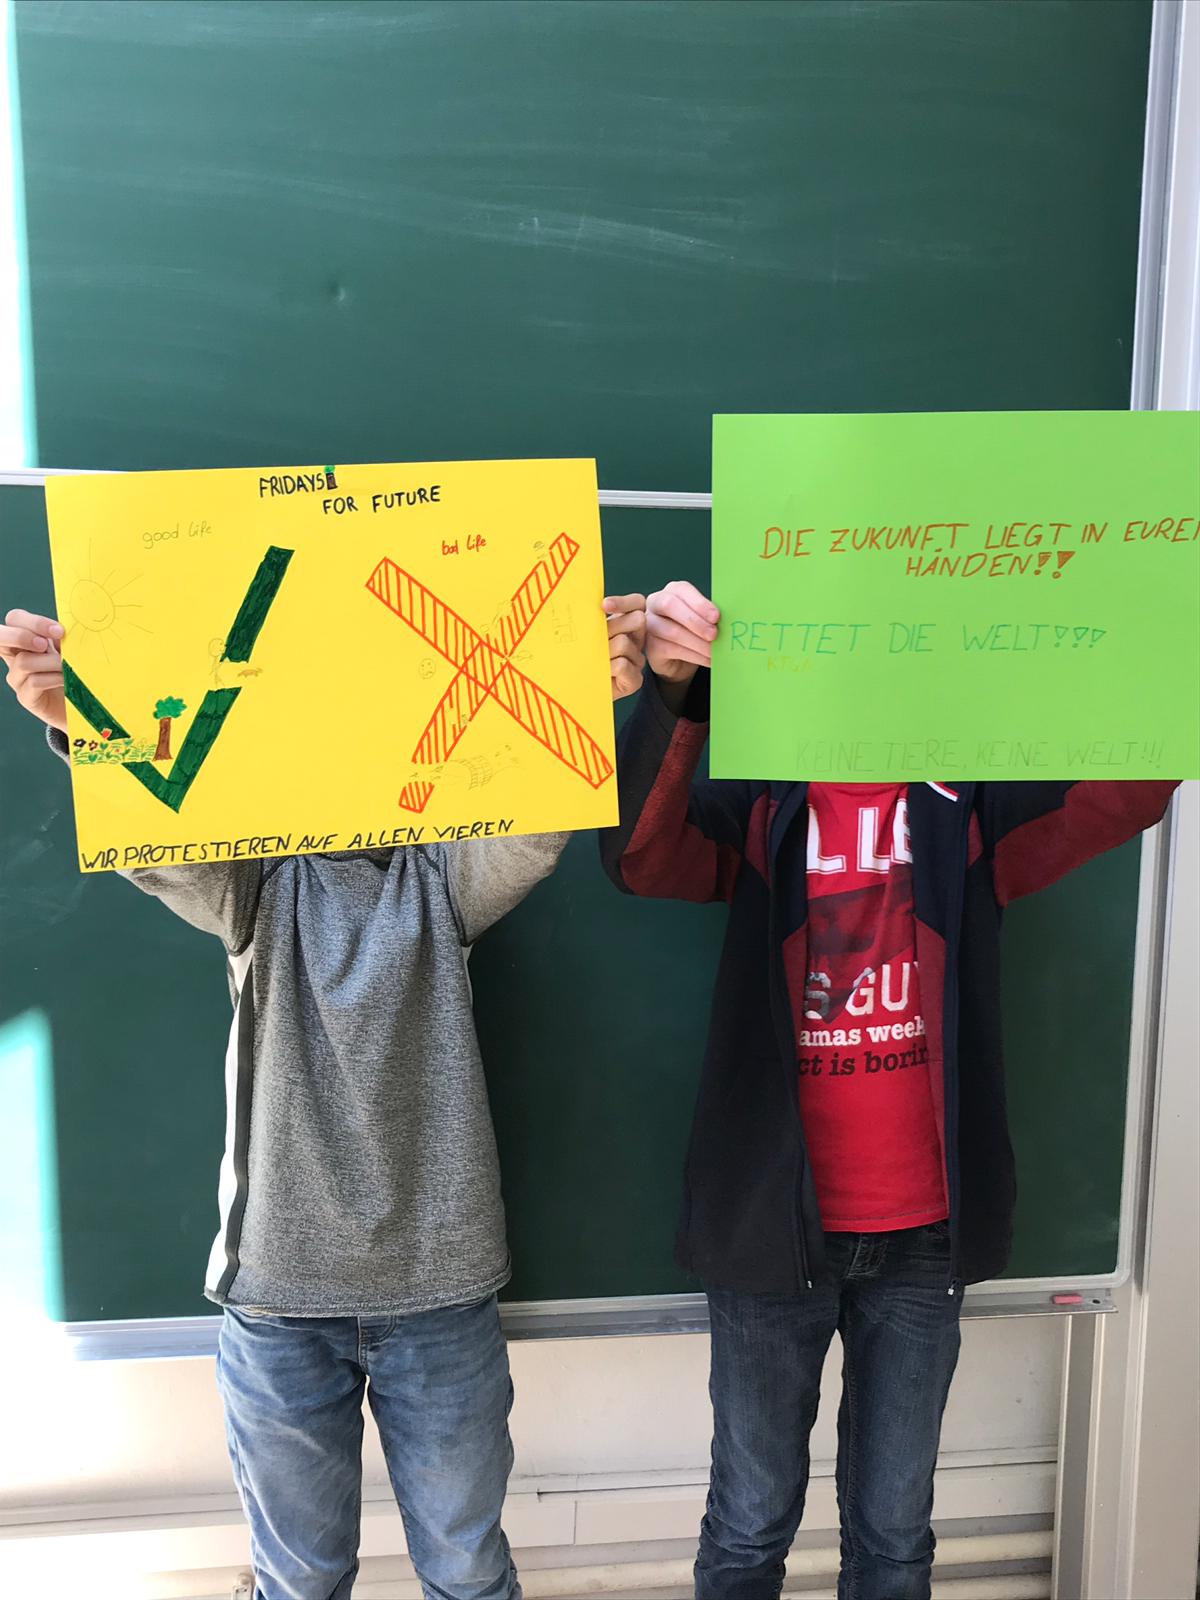 FRIDAYS
FOR FUTURE
good life
bad life
WIR PROTESTIEREN AUF ALLEN VIEREN
DIE ZUKUNFT LIEGT IN EURE
HÄNDEN!!
RETTET DIE WELT!!!
KEINE TIERE, KEINE WELT!!!
GU
amas week
ct is borin